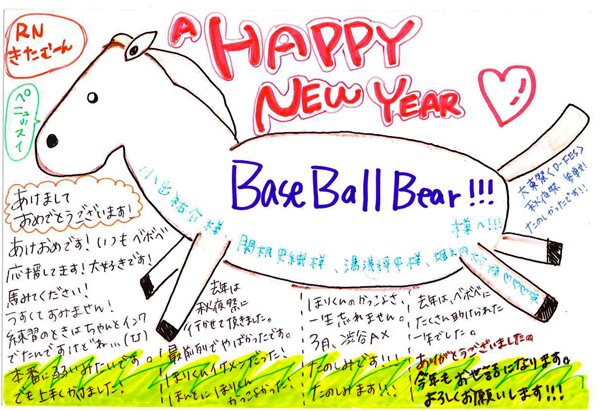 RN
きたむーん
A HAPPY
NEW YEAR
ペニュッスイ
BaseBallBear!!!
小出祐介様、関根史織様、湯浅将平様、堀之内大介様
様へ!!!
大東祭(D-FES)
秋夜祭
たのしかったです!!
あけまして
おめでとうございます!
あけおめです! いつもベボベ
応援してます! 大好きです!
馬みてください!
うすくてすみません!
練習のときはちゃんとインク
でたんですけどね…
本番に弱いみたいです。
でも上手くかけました!
去年は
秋夜祭に
行かせて頂きました。
最前列でやばかったです。
ほりくんイケメンだった!
ほんとにほりくん
かっこよかった!
ほりくんのかっこよさ、
一生忘れません。
3月、渋谷AX
たのしみです!!
たのしみます!!
去年は、ベボベに
たくさん助けられた
一年でした。
ありがとうございました。
今年もお世話になります。
よろしくお願いします!!!